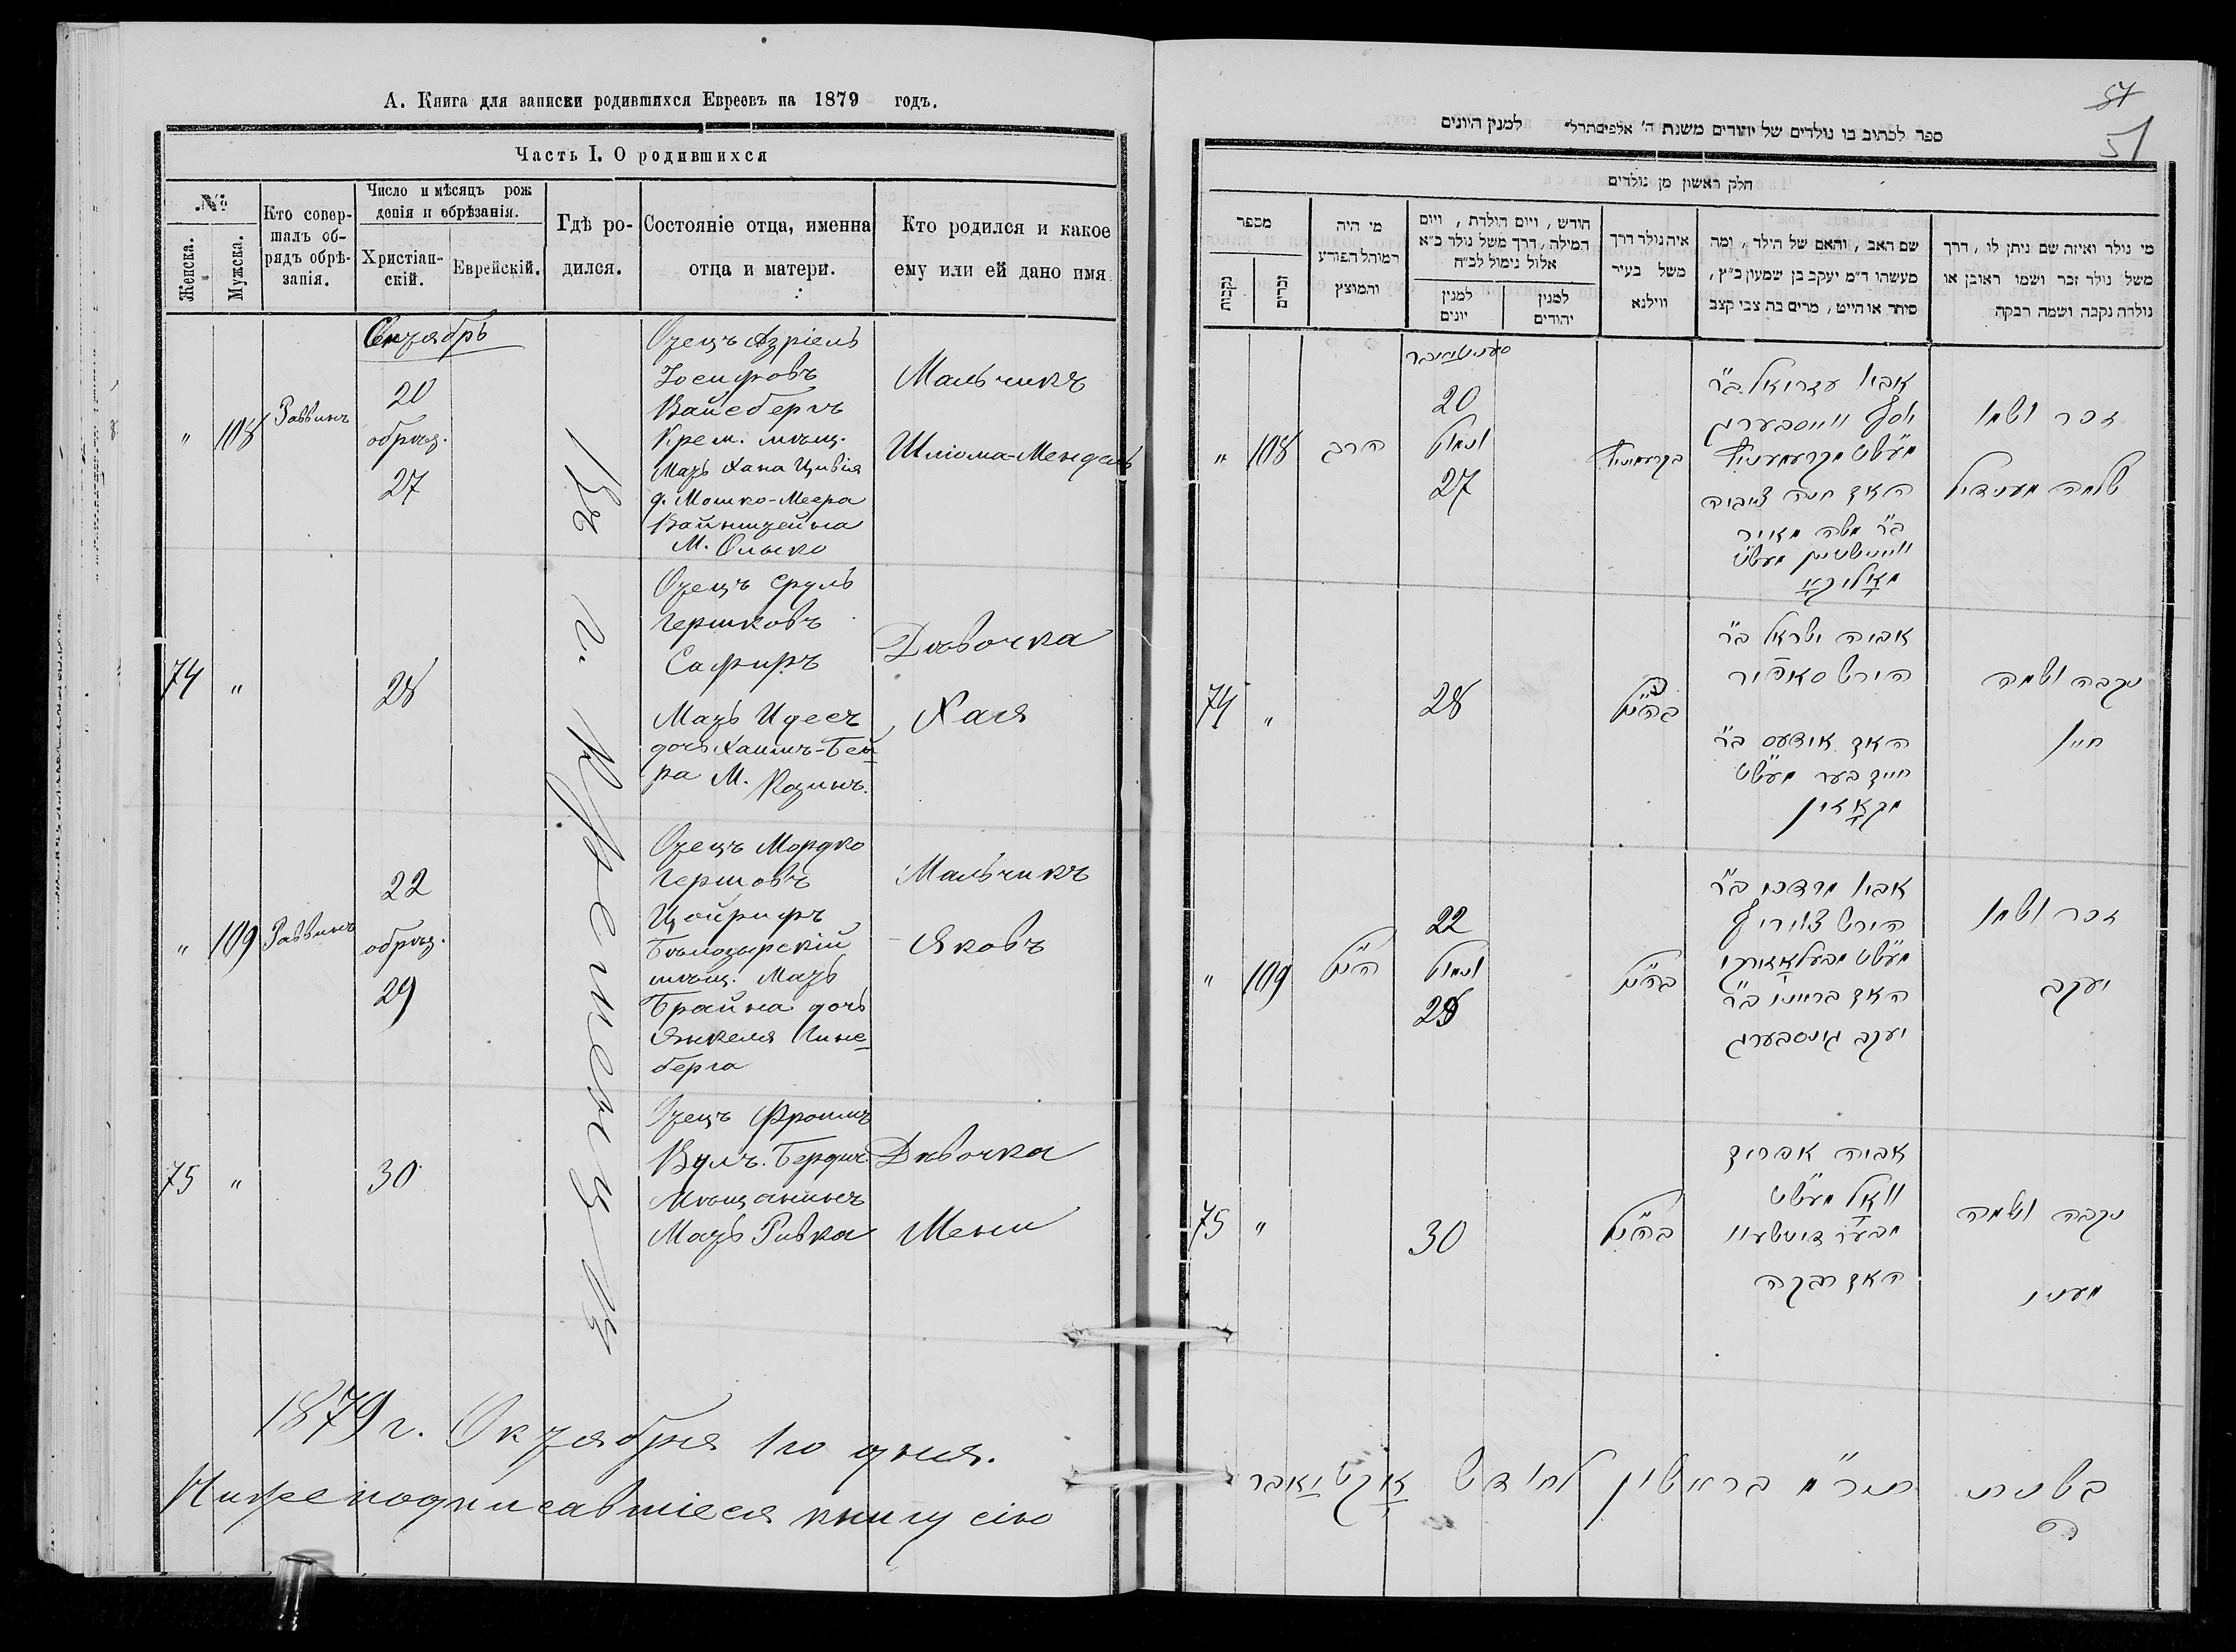 А. Книга для записки родившихся Евреевъ на 1879 годъ.
Часть I. О родившихся
№
Женска.
Мужска.
Кто совер-
шалъ об-
рядъ обрѣ-
занія.
Число и мѣсяцъ рож
денія и обрѣзанія.
Христіан-
скій.
Еврейскій.
Гдѣ ро-
дился.
Состояніе отца, именна
отца и матери.
Кто родился и какое
ему или ей дано имя
Сентябрь
Въ г. Кременцѣ
" 108 Раввинъ
20
обрѣз.
27
Отецъ Азріель
Іосифовъ
Вайсбергъ
Крем. мѣщ.
Мать Хана Цивія
д. Мошко-Меера
Вайнштейна
М. Олыко
Мальчикъ
Шліома-Мендель
74 "
28
Отецъ Сруль
Гершковъ
Сафиръ
Мать Идесъ
дочь Хаимъ-Бе
ра М. Козинъ.
Дѣвочка
Хая
" 109 Раввинъ
22
обрѣз.
29
Отецъ Мордко
Гершовъ
Цойрифъ
Бѣлозырскій
мѣщ. Мать
Брайна дочь
Янкеля Гинс
берга
Мальчикъ
Яковъ
75 "
30
Отецъ Фроимъ
Вулъ. Бердич.
Мѣщанинъ
Мать Ривка
Дѣвочка
Мени
1879 г. Октября 1го дня.
Нижеподписавшіеся книгу сію
57
51
ספר לכתוב בו נולדים של יהודים משנת ה' אלפים תרל" למנין היונים
חלק ראשון מן נולדים
מספר
נקבות
זכרים
מי היה
המוהל הפורע
והמוצץ
חודש, ויום הולדת, ויום
המילה, דרך משל נולד כ"א
אלול נימול לכ"ח
למנין
יונים
למנין
יהודים
איה נולד דרך
משל בעיר
ווילנא
שם האב, והאם של הילד, ומה
מעשהו ד"מ יעקב בן שמעון כ"ץ,
סוחר או חייט, מרים בת צבי קצב
מי נולד ואיזה שם ניתן לו, דרך
משל נולד זכר ושמו ראובן או
נולדה נקבה ושמה רבקה
סענטיאבר
" 108 הרב
20
ונמול
27
בקרעמניץ
אביו עזריאל ב"ר
יוסף ווייסבערג
מעשט מקרעמעניץ
האם חנה צוביה
ב"ר משה מאיר
וויינשטיין מעשט
מאליקא
זכר ושמו
שלמה מענדיל
74 "
28
בהנ"ל
אביה ישראל ב"ר
הירש סאפיר
האם אידעס ב"ר
חיים בער מעשט
מקאזין
נקבה ושמה
חיי'
" 109 הנ"ל
22
ונמול
29
בהנ"ל
אביו מרדכי ב"ר
הירש צוריף
האם בריינו ב"ר
יעקב גינסבערג
זכר ושמו
יעקב
75 "
30
בהנ"ל
אביה אפרים
וואל מעשט
האם רבקה
נקבה ושמה
מעני
בשנת תר"מ בראשון לחודש אקטיאבר